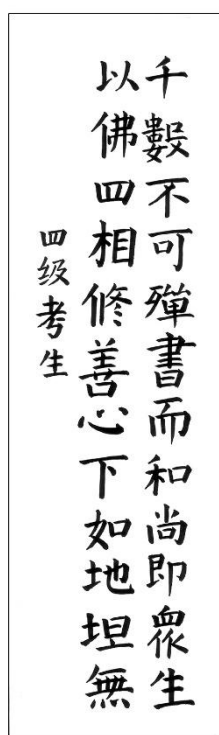 千數不可殫書而和尚即眾生
以佛四相修善心下如地坦無
四级考生